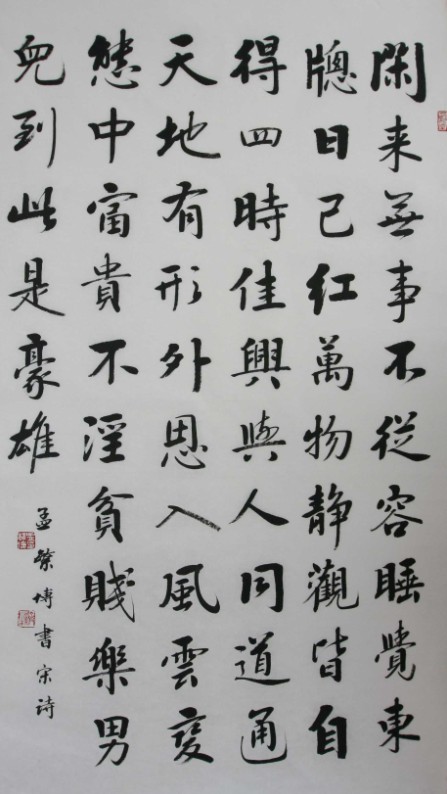 閑来無事不從容睡覺東
牕日已红萬物静觀皆自
得四時佳興與人同道通
天地有形外思入風雲变
態中富貴不淫貧賤樂男
兒到此是豪雄
孟繁博書宋詩